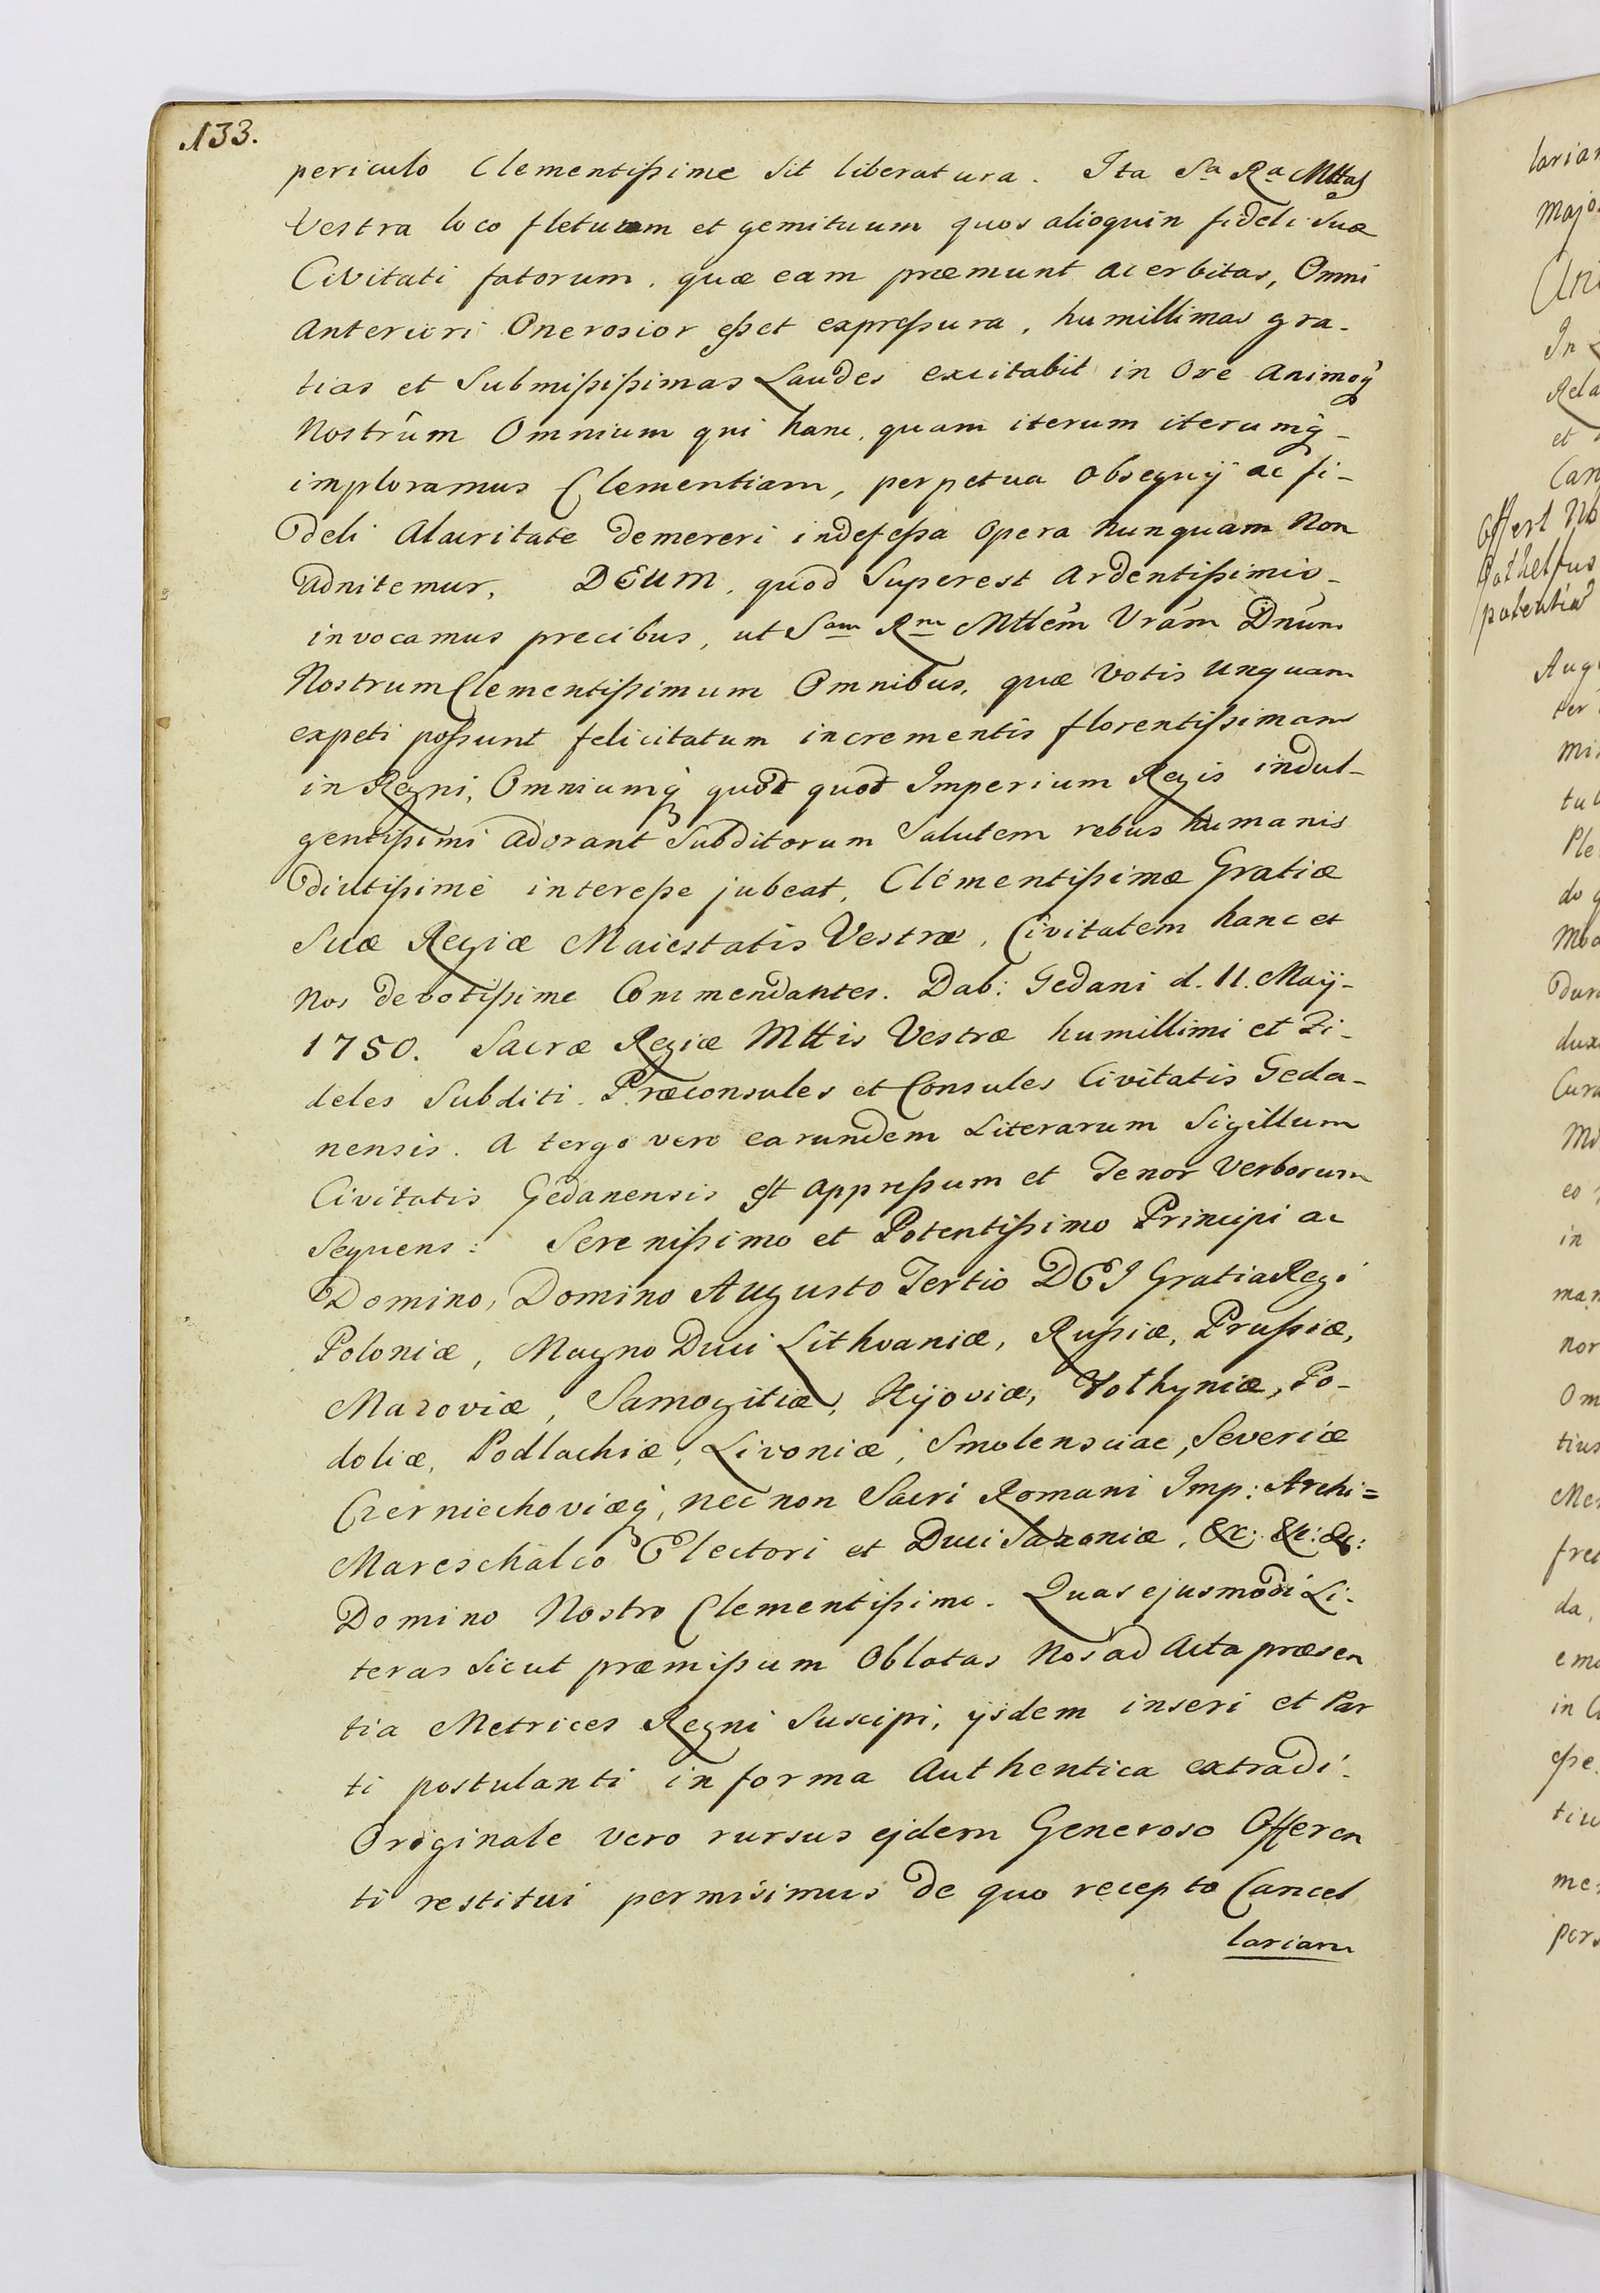 133.
periculo Clementißime sit liberatura. Ita Sa Ra Mttas
Vestra loco fletuum et gemituum quos alioquin fideli suæ
Civitati fatorum, quæ eam præmunt acerbitas, Omni
anteriori Onerosior eßet expreßura, humillimas gra-
tias et Submißißimas Laudes excitabit in Ore Animoq
Nostrûm Omnium qui hanc, quam iterum iterumq-
imploramus Clementiam, perpetua Obsequij ac fi-
deli Alacritate demereri indefeßa Opera nunquam Non
adnitemur, DEUM, quod Superest Ardentißimis-
invocamus precibus, ut Sam Rm Mttem Vram Dnum
Nostrum Clementißimum Omnibus, quæ Votis Unquam
expeti poßunt felicitatum incrementis florentißimam
in Regni, Omniumq quot quot Imperium Regis indul-
gentißimi adorant Subditorum Salutem rebus humanis
diutißimé intereße jubeat, Clementißimæ Gratiæ
Suæ Regiæ Maiestatis Vestræ, Civitatem hanc et
Nos devotißime Commendantes. Dab: Gedani d. 11. Maij-
1750. Sacræ Regiæ Mttis Vestræ humillimi et Fi-
deles Subditi. Præconsules et Consules Civitatis Geda-
nensis. A tergo vero earundem Literarum Sigillum
Civitatis Gedanensis est appreßum et Tenor Verborum
Sequens: Serenißimo et Potentißimo Principi ac
Domino, Domino Augusto Tertio DEI Gratia Regi
Poloniæ, Magno Duci Lithvaniæ, Rußiæ, Prußiæ,
Mazoviæ, Samogitiæ, Kijoviæ, Volhyniæ, Po-
doliæ, Podlachiæ, Livoniæ, Smolensciae, Severiæ
Czerniechoviæq, nec non Sacri Romani Imp: Archi=
Mareschalco Electori et Duci Saxoniæ, &c: &c: &c:
Domino Nostro Clementißimo. Quas ejusmodi Li-
teras sicut præmißum Oblatas Nos ad Acta præsen
tia Metrices Regni Suscipi, ijsdem inseri et Par
ti postulanti in forma Authentica extradi.
Originale vero rursus ejdem Generoso Offeren
ti restitui permisimus de quo recepto Cancel
lariam